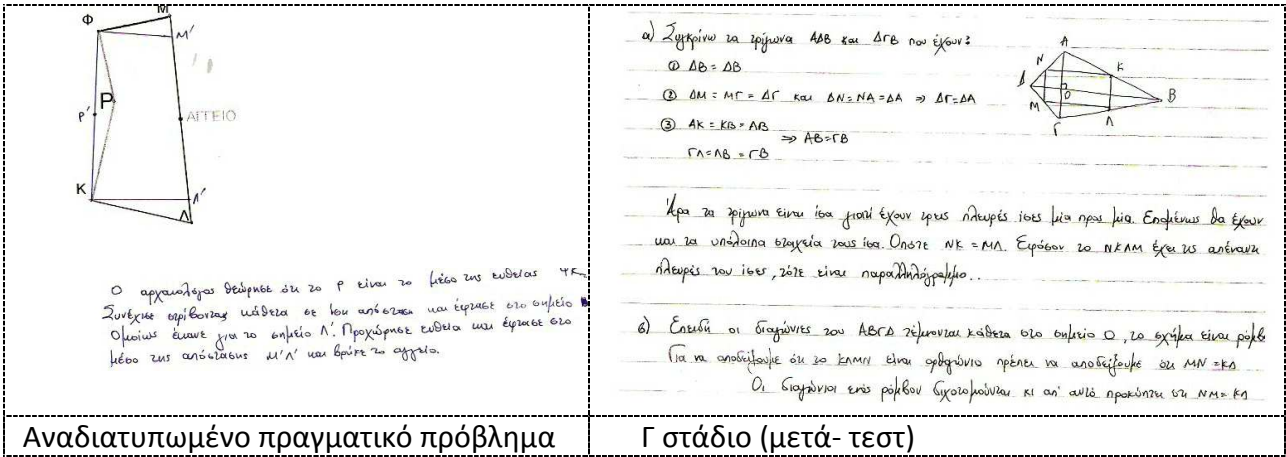 Φ
Μ
Μ'
Ρ
Ρ'
ΑΓΓΕΙΟ
Κ
Λ'
Λ
Ο αρχαιολόγος θεώρησε ότι το Ρ είναι το μέσο της ευθείας ΨΚ.
Συνέχισε στρίβοντας κάθετα σε ίση απόσταση και έφτασε στο σημείο
Ομοίως έκανε για το σημείο Λ'. Προχώρησε ευθεία και έφτασε στο
μέσο της απόστασης Μ'Λ' και βρήκε το αγγείο.
Αναδιατυπωμένο πραγματικό πρόβλημα
α) Συγκρίνω τα τρίγωνα ΑΔΒ και ΔΓΒ που έχουν:
① ΔΒ = ΔΒ
② ΔΜ = ΜΓ = ΔΓ και ΔΝ = ΝΑ = ΔΑ ⇒ ΔΓ = ΔΑ
③ ΑΚ = ΚΒ = ΑΒ
⇒ ΑΒ = ΓΒ
ΓΛ = ΛΒ = ΓΒ
Α
Ν
Κ
Δ
Ο
Β
Μ
Λ
Γ
Άρα τα τρίγωνα είναι ίσα γιατί έχουν τρεις πλευρές ίσες μία προς μία. Επομένως θα έχουν
και τα υπόλοιπα στοιχεία τους ίσα. Οπότε ΝΚ = ΜΛ. Εφόσον το ΝΚΛΜ έχει τις απέναντι
πλευρές του ίσες, τότε είναι παραλληλόγραμμο..
β) Επειδή οι διαγώνιες του ΑΒΓΔ τέμνονται κάθετα στο σημείο Ο, το σχήμα είναι ρόμβ
Για να αποδείξουμε ότι το ΚΛΜΝ είναι ορθογώνιο πρέπει να αποδείξουμε ότι ΜΝ = ΚΛ
Οι διαγώνιοι ενός ρόμβου διχοτομούνται κι απ' αυτό προκύπτει ότι ΝΜ = ΚΛ
Γ στάδιο (μετά- τεστ)